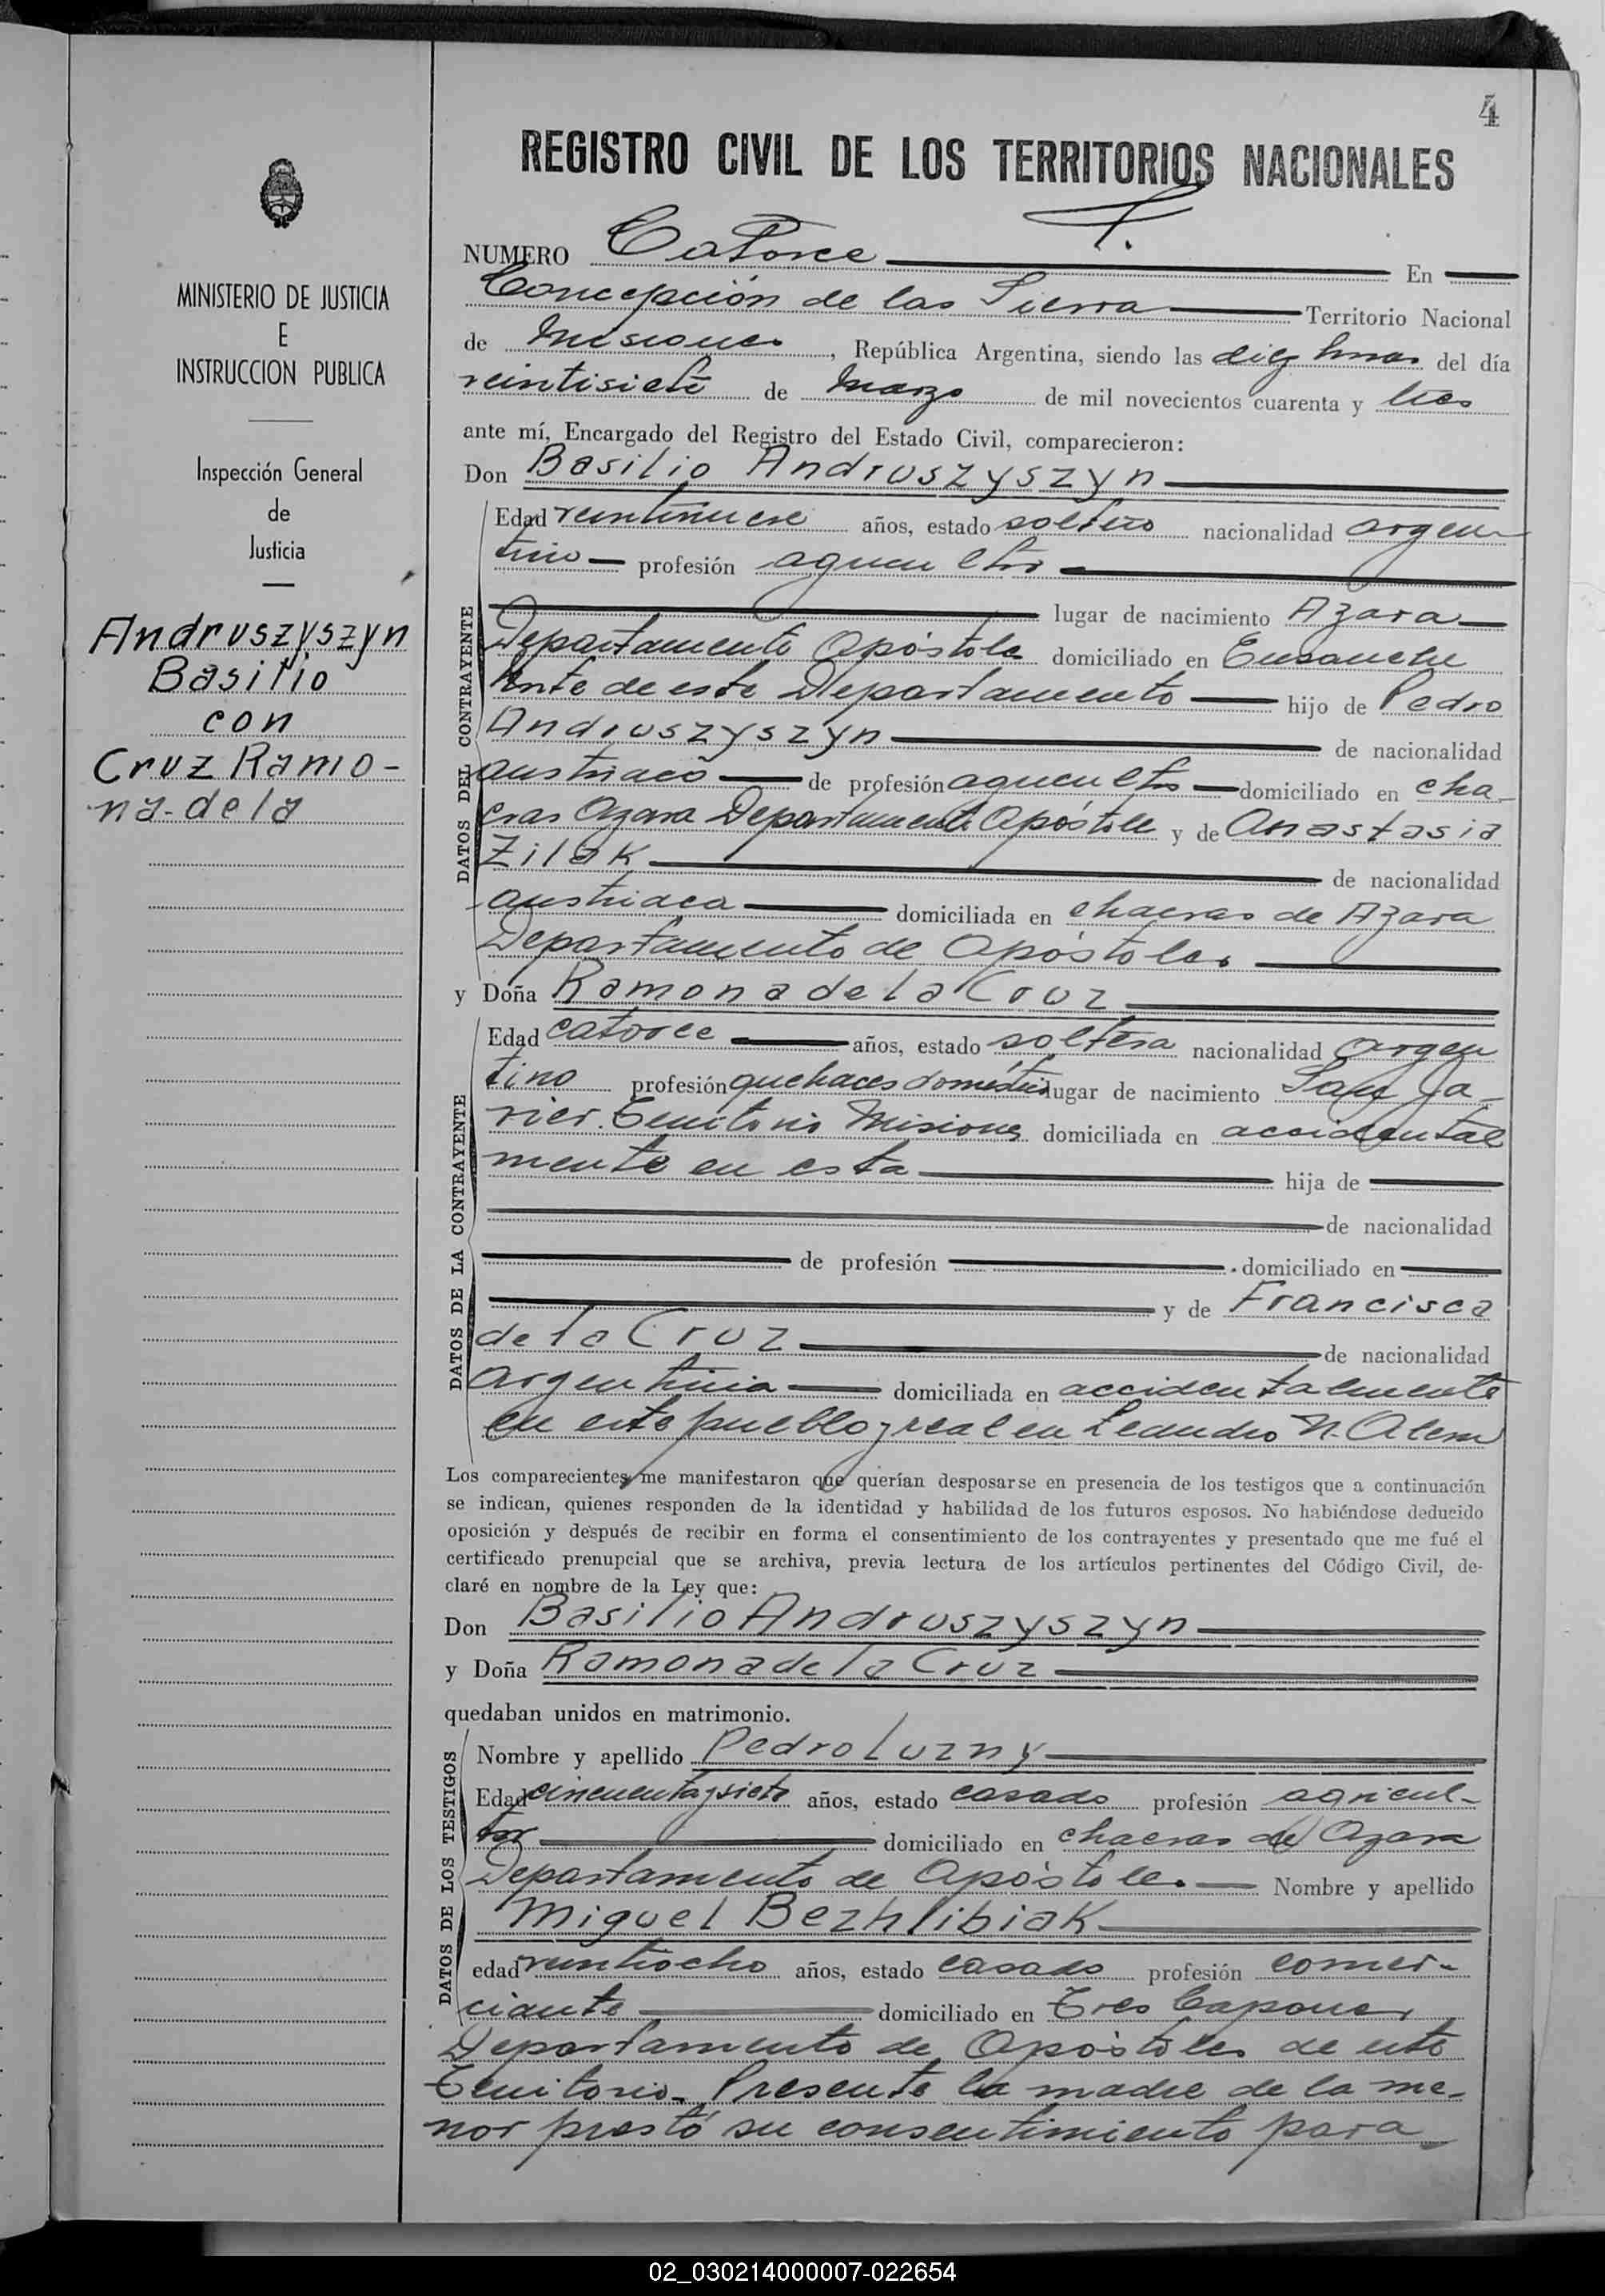 4
REGISTRO CIVIL DE LOS TERRITORIOS NACIONALES
MINISTERIO DE JUSTICIA
E
INSTRUCCION PUBLICA
Inspección General
de
Justicia
Andruszyszyn
Basilio
con
Cruz Ramo-
na-de la
NUMERO Catorce En
Concepción de las Sierra Territorio Nacional
de Misiones, República Argentina, siendo las diez horas del día
veintisiete de Marzo de mil novecientos cuarenta y tres
ante mí, Encargado del Registro del Estado Civil, comparecieron:
Don Basilio Andruszyszyn
DATOS DEL CONTRAYENTE
Edad veintinueve años, estado soltero nacionalidad argen
tino profesión agricultor
lugar de nacimiento Azara
Departamento Apóstoles domiciliado en Ensanche
Norte de este Departamento hijo de Pedro
Andruszyszyn de nacionalidad
austriaco de profesión agricultor domiciliado en cha-
cras Azara Departamento Apóstoles y de Anastasia
Zilak de nacionalidad
austriaca domiciliada en chacras de Azara
Departamento de Apóstoles
y Doña Ramona de la Cruz
DATOS DE LA CONTRAYENTE
Edad catorce años, estado soltera nacionalidad argen
tino profesión quehaces domésticos lugar de nacimiento San Ja-
vier. Territorio Misiones domiciliada en accidental
mente en esta hija de
de nacionalidad
de profesión domiciliado en
y de Francisca
de la Cruz de nacionalidad
argentinia domiciliada en accidentalmente
en este pueblo y real en Leandro N. Alem
Los comparecientes me manifestaron que querían desposarse en presencia de los testigos que a continuación
se indican, quienes responden de la identidad y habilidad de los futuros esposos. No habiéndose deducido
oposición y después de recibir en forma el consentimiento de los contrayentes y presentado que me fué el
certificado prenupcial que se archiva, previa lectura de los artículos pertinentes del Código Civil, de-
claré en nombre de la Ley que:
Don Basilio Andruszyszyn
y Doña Ramona de la Cruz
quedaban unidos en matrimonio.
DATOS DE LOS TESTIGOS
Nombre y apellido Pedro Luzny
Edad cincuenta y siete años, estado casado profesión agricul-
tor domiciliado en chacras de Azara
Departamento de Apóstoles. Nombre y apellido
Miguel Bezhlibiak
edad veintiocho años, estado casado profesión comer-
ciante domiciliado en Tres Capones
Departamento de Apóstoles de este
Territorio. Presente la madre de la me-
nor prestó su consentimiento para
02_030214000007-022654